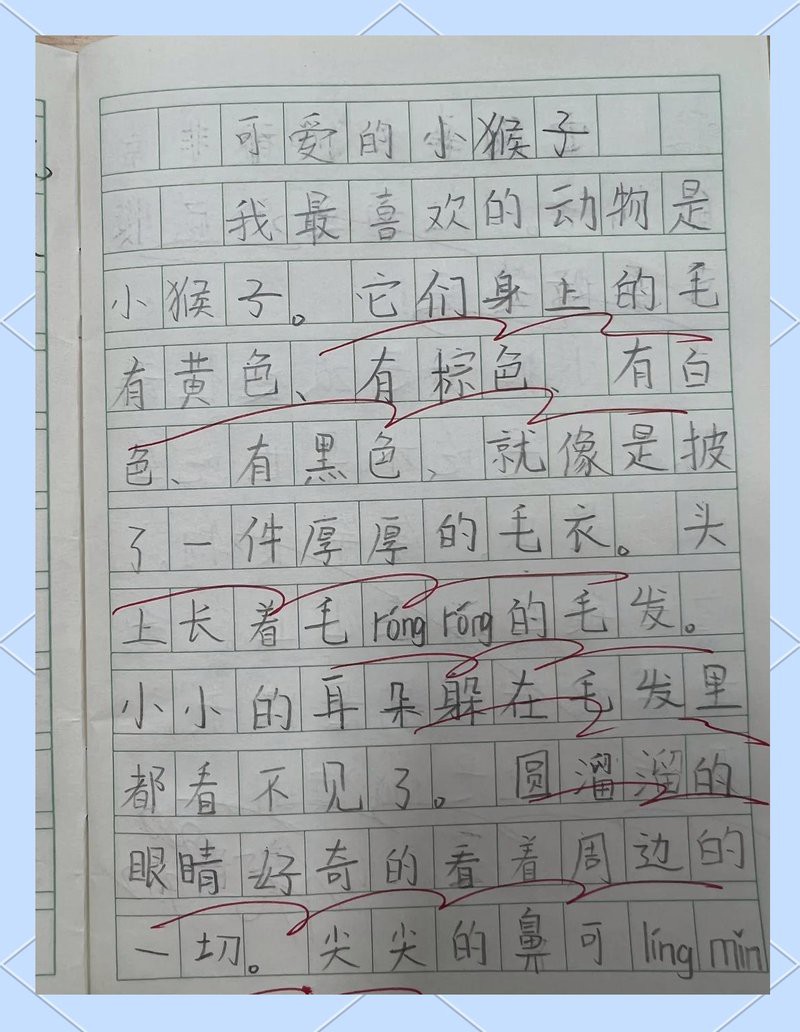 可爱的小猴子
我最喜欢的动物是
小猴子。它们身上的毛
有黄色、有棕色、有白
色、有黑色、就像是披
了一件厚厚的毛衣。头
上长着毛róng róng的毛发。
小小的耳朵躲在毛发里
都看不见了。圆溜溜的
眼睛好奇的看着周边的
一切。尖尖的鼻可líng mǐn